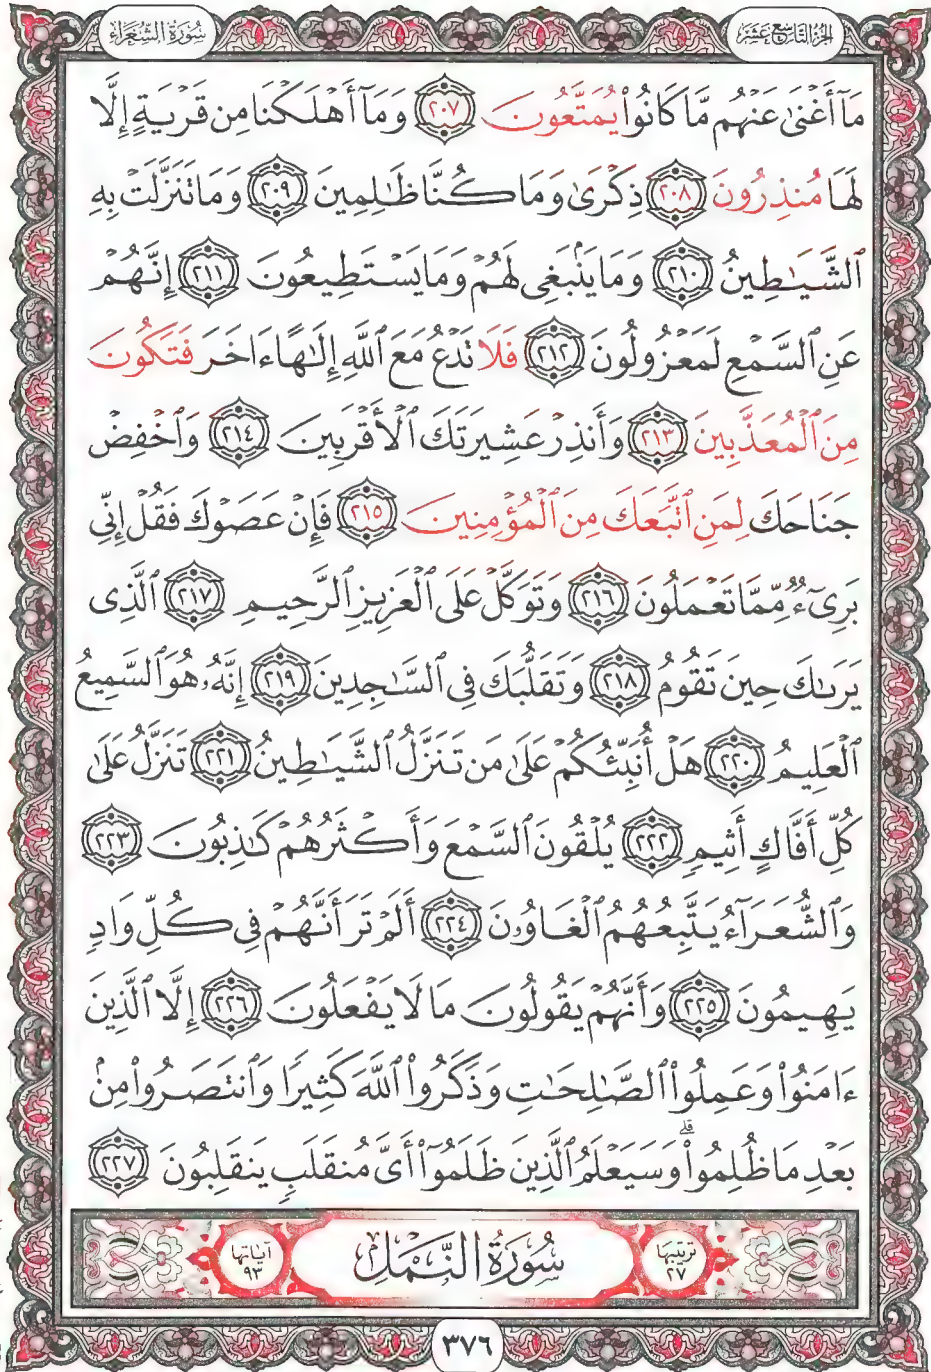 سُورَةُ الشُّعَرَاءِ
الجُزْءُ التَّاسِعَ عَشَرَ
مَآ أَغْنَىٰ عَنْهُم مَّا كَانُوا۟ يُمَتَّعُونَ ٢٠٧ وَمَآ أَهْلَكْنَا مِن قَرْيَةٍ إِلَّا
لَهَا مُنذِرُونَ ٢٠٨ ذِكْرَىٰ وَمَا كُنَّا ظَٰلِمِينَ ٢٠٩ وَمَا تَنَزَّلَتْ بِهِ
ٱلشَّيَٰطِينُ ٢١٠ وَمَا يَنۢبَغِى لَهُمْ وَمَا يَسْتَطِيعُونَ ٢١١ إِنَّهُمْ
عَنِ ٱلسَّمْعِ لَمَعْزُولُونَ ٢١٢ فَلَا تَدْعُ مَعَ ٱللَّهِ إِلَٰهًا ءَاخَرَ فَتَكُونَ
مِنَ ٱلْمُعَذَّبِينَ ٢١٣ وَأَنذِرْ عَشِيرَتَكَ ٱلْأَقْرَبِينَ ٢١٤ وَٱخْفِضْ
جَنَاحَكَ لِمَنِ ٱتَّبَعَكَ مِنَ ٱلْمُؤْمِنِينَ ٢١٥ فَإِنْ عَصَوْكَ فَقُلْ إِنِّى
بَرِىٓءٌ مِّمَّا تَعْمَلُونَ ٢١٦ وَتَوَكَّلْ عَلَى ٱلْعَزِيزِ ٱلرَّحِيمِ ٢١٧ ٱلَّذِى
يَرَىٰكَ حِينَ تَقُومُ ٢١٨ وَتَقَلُّبَكَ فِى ٱلسَّٰجِدِينَ ٢١٩ إِنَّهُۥ هُوَ ٱلسَّمِيعُ
ٱلْعَلِيمُ ٢٢٠ هَلْ أُنَبِّئُكُمْ عَلَىٰ مَن تَنَزَّلُ ٱلشَّيَٰطِينُ ٢٢١ تَنَزَّلُ عَلَىٰ
كُلِّ أَفَّاكٍ أَثِيمٍ ٢٢٢ يُلْقُونَ ٱلسَّمْعَ وَأَكْثَرُهُمْ كَٰذِبُونَ ٢٢٣
وَٱلشُّعَرَآءُ يَتَّبِعُهُمُ ٱلْغَاوُۥنَ ٢٢٤ أَلَمْ تَرَ أَنَّهُمْ فِى كُلِّ وَادٍ
يَهِيمُونَ ٢٢٥ وَأَنَّهُمْ يَقُولُونَ مَا لَا يَفْعَلُونَ ٢٢٦ إِلَّا ٱلَّذِينَ
ءَامَنُوا۟ وَعَمِلُوا۟ ٱلصَّٰلِحَٰتِ وَذَكَرُوا۟ ٱللَّهَ كَثِيرًا وَٱنتَصَرُوا۟ مِنۢ
بَعْدِ مَا ظُلِمُوا۟ ۗ وَسَيَعْلَمُ ٱلَّذِينَ ظَلَمُوٓا۟ أَىَّ مُنقَلَبٍ يَنقَلِبُونَ ٢٢٧
ترتيبها ٢٧
سُورَةُ النَّمْلِ
آياتها ٩٣
٣٧٦